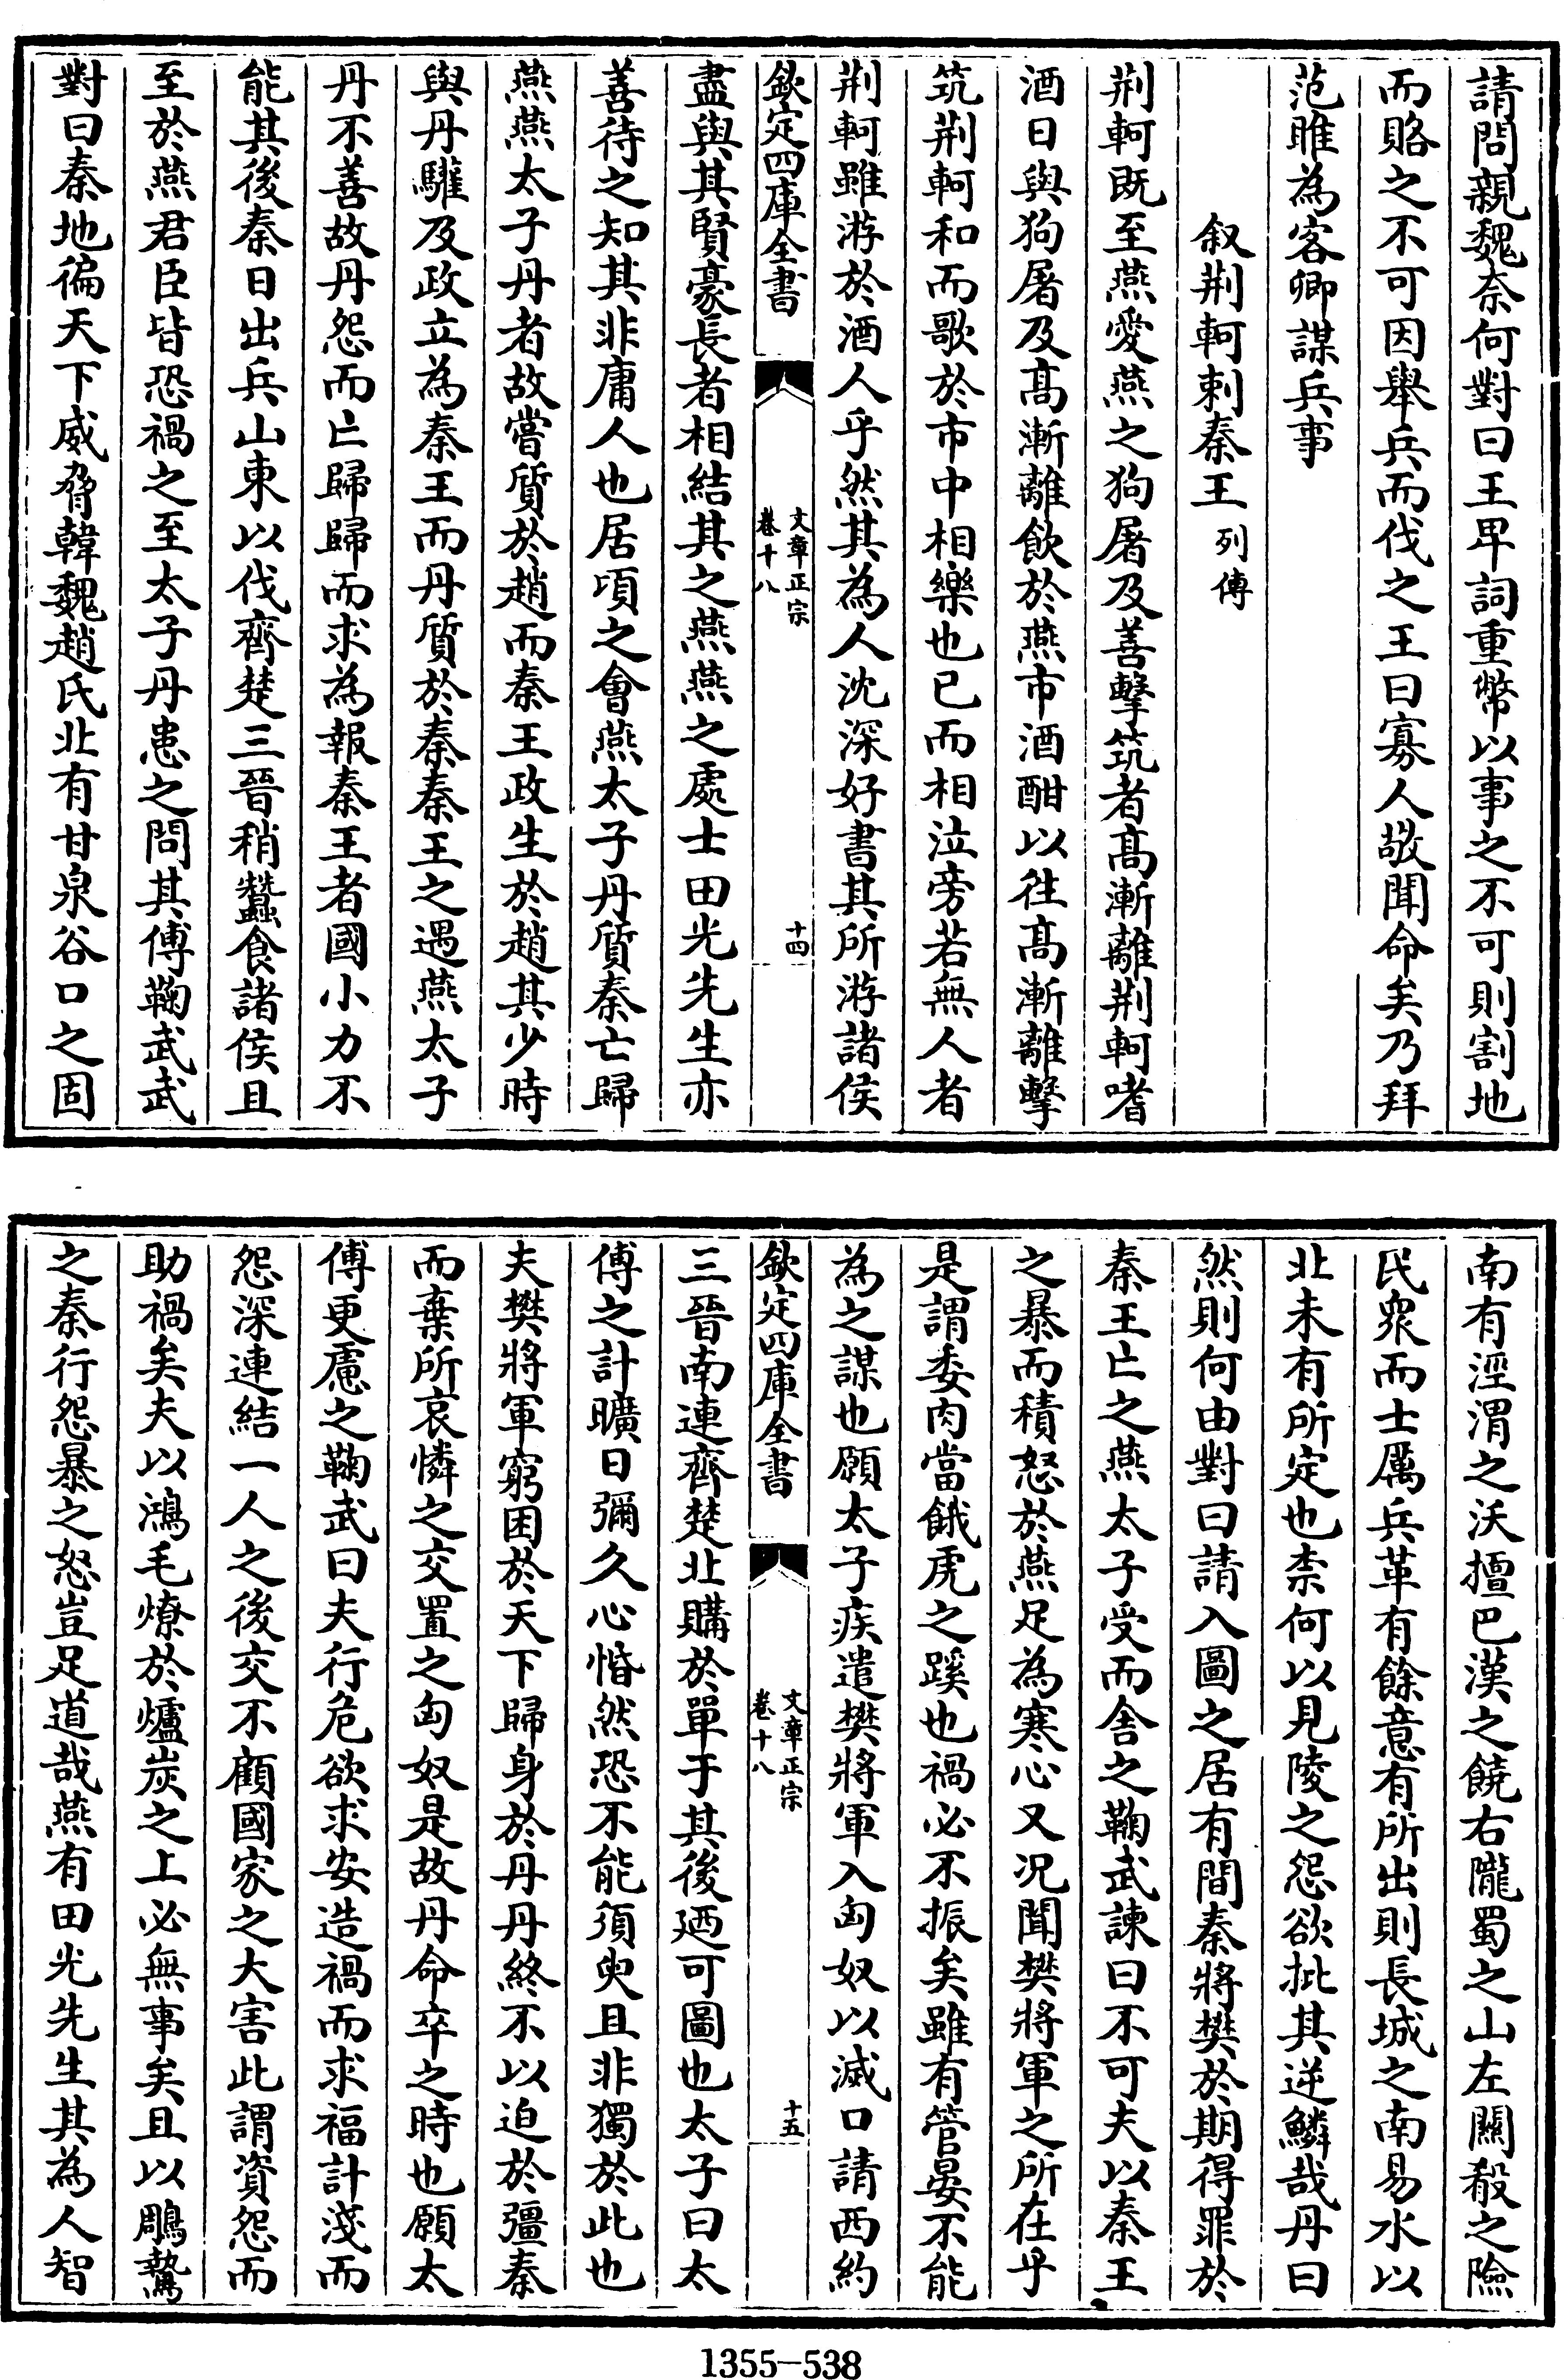 請問親魏奈何對曰王卑詞重幣以事之不可則割地
而賂之不可因舉兵而伐之王曰寡人敬聞命矣乃拜
范雎為客卿謀兵事
叙荆軻刺秦王列傳
荆軻既至燕愛燕之狗屠及善擊筑者髙漸離荆軻嗜
酒日與狗屠及髙漸離飲於燕市酒酣以往髙漸離擊
筑荆軻和而歌於市中相樂也已而相泣旁若無人者
荆軻雖游於酒人乎然其為人沈深好書其所游諸侯
欽定四庫全書
文章正宗
卷十八
十四
盡與其賢豪長者相結其之燕燕之處士田光先生亦
善待之知其非庸人也居頃之會燕太子丹質秦亡歸
燕燕太子丹者故嘗質於趙而秦王政生於趙其少時
與丹驩及政立為秦王而丹質於秦秦王之遇燕太子
丹不善故丹怨而亡歸歸而求為報秦王者國小力不
能其後秦日出兵山東以伐齊楚三晉稍蠶食諸侯且
至於燕君臣皆恐禍之至太子丹患之問其傅鞠武武
對曰秦地徧天下威脅韓魏趙氏北有甘泉谷口之固
南有涇渭之沃擅巴漢之饒右隴蜀之山左關殽之險
民衆而士厲兵革有餘意有所出則長城之南易水以
北未有所定也柰何以見陵之怨欲批其逆鱗哉丹曰
然則何由對曰請入圖之居有間秦將樊於期得罪於
秦王亡之燕太子受而舍之鞠武諫曰不可夫以秦王
之暴而積怒於燕足為寒心又况聞樊將軍之所在乎
是謂委肉當餓虎之蹊也禍必不振矣雖有管晏不能
為之謀也願太子疾遣樊將軍入匈奴以滅口請西約
欽定四庫全書
文章正宗
卷十八
十五
三晉南連齊楚北購於單于其後廼可圖也太子曰太
傅之計曠日彌久心惛然恐不能須臾且非獨於此也
夫樊將軍窮困於天下歸身於丹丹終不以迫於彊秦
而棄所哀憐之交置之匈奴是故丹命卒之時也願太
傅更慮之鞠武曰夫行危欲求安造禍而求福計淺而
怨深連結一人之後交不顧國家之大害此謂資怨而
助禍矣夫以鴻毛燎於爐炭之上必無事矣且以鵰鷙
之秦行怨暴之怒豈足道哉燕有田光先生其為人智
1355—538